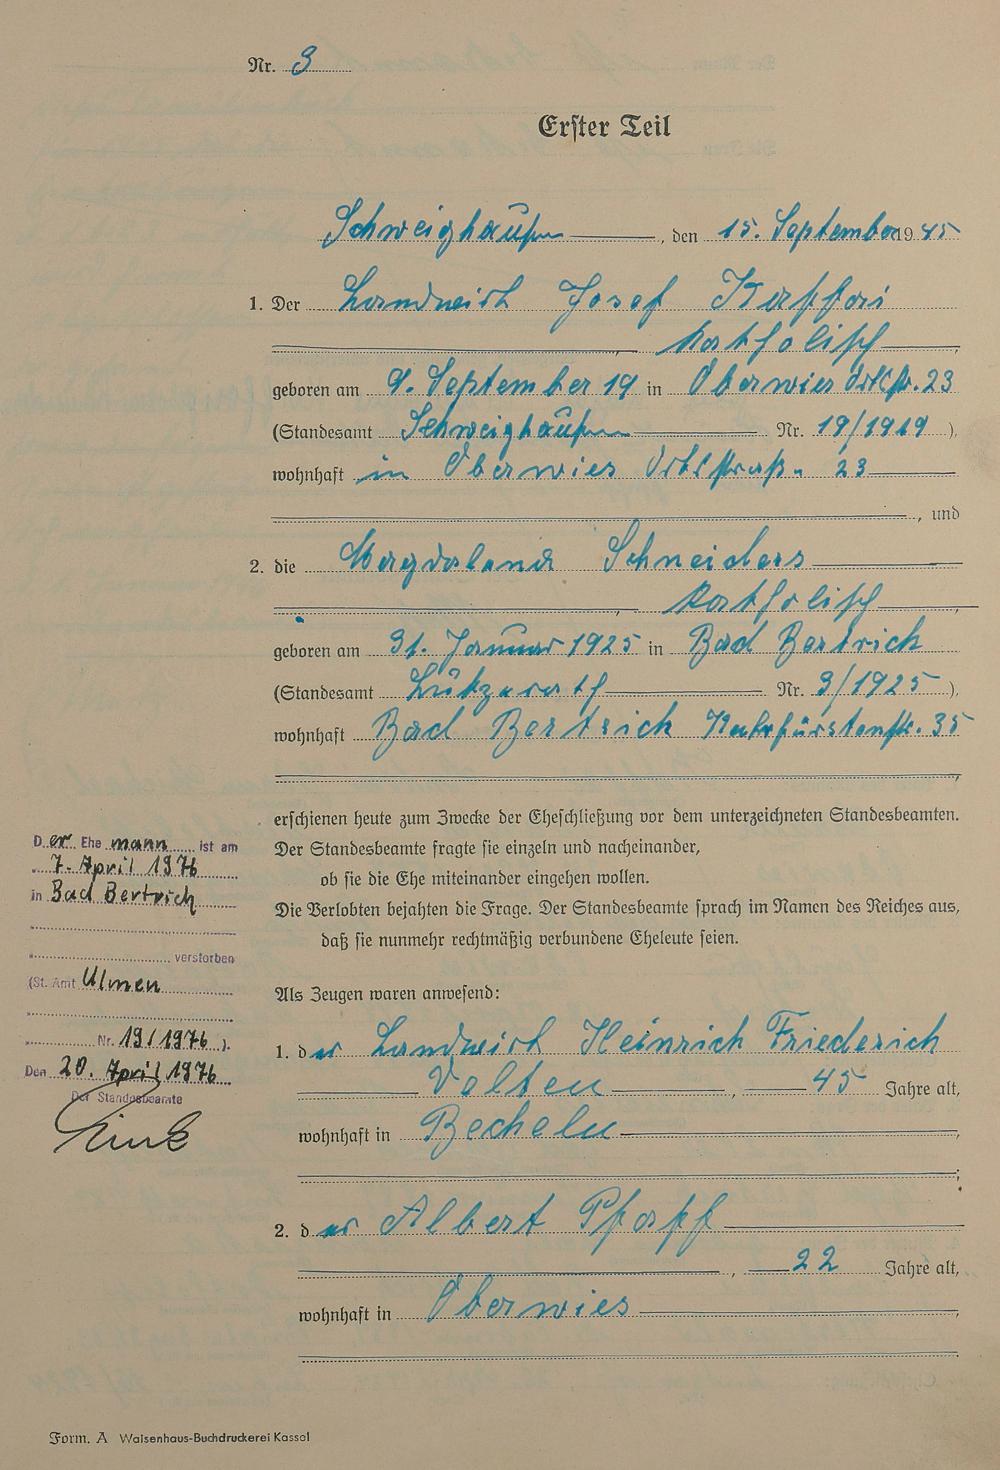 Nr. 3
Erster Teil
Schweighausen, den 15. September 1945
1. Der Landwirt Josef Kaffai
katholisch
geboren am 9. September 19 in Oberwies Ortsstr. 23
(Standesamt Schweighausen Nr. 19/1919),
wohnhaft in Oberwies Ortsstraße 23
, und
2. die Magdalena Schneiders
katholisch
geboren am 31. Januar 1925 in Bad Bertrich
(Standesamt Lutzerath Nr. 3/1925),
wohnhaft Bad Bertrich Kuhrfürstenstr. 35
erschienen heute zum Zwecke der Eheschließung vor dem unterzeichneten Standesbeamten.
Der Standesbeamte fragte sie einzeln und nacheinander,
ob sie die Ehe miteinander eingehen wollen.
Die Verlobten bejahten die Frage. Der Standesbeamte sprach im Namen des Reiches aus,
daß sie nunmehr rechtmäßig verbundene Eheleute seien.
Als Zeugen waren anwesend:
1. der Landwirt Heinrich Friederich
45 Jahre alt,
wohnhaft in Becheln
2. der Albert Pfaff
, 22 Jahre alt,
wohnhaft in Oberwies
Der Ehemann ist am
7. April 1976
in Bad Bertrich
verstorben
(St. Amt Ulmen
Nr. 19/1976).
Den 20. April 1976
Der Standesbeamte
Form. A Waisenhaus-Buchdruckerei Kassel